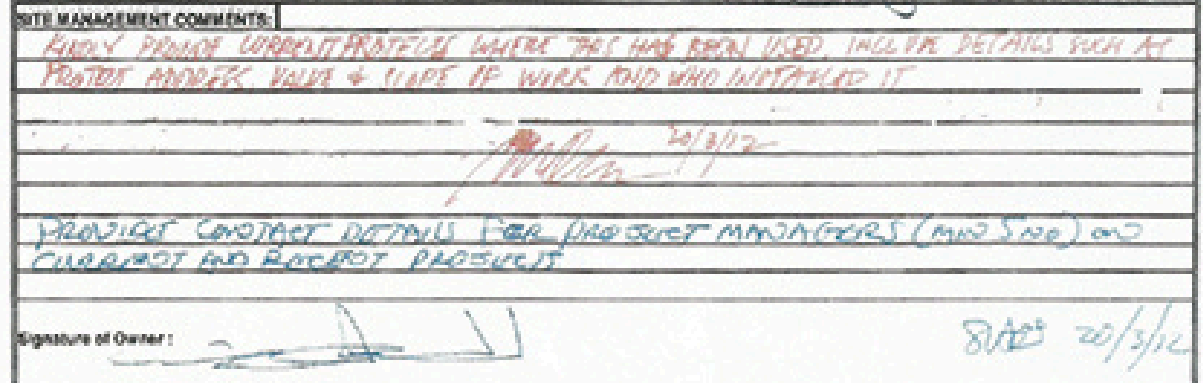 SITE MANAGEMENT COMMENTS:
KINDLY PROVIDE CURRENT PROJECTS WHERE THIS HAS BEEN USED. INCLUDE DETAILS SUCH AS
PROJECT ADDRESS, VALUE & SCOPE OF WORK AND WHO INSTALLED IT
20/3/12
PROVIDE CONTACT DETAILS FOR PROJECT MANAGERS (MIN 5 NO) ON
CURRENT AND RECENT PROJECTS
Signature of Owner :
20/3/12